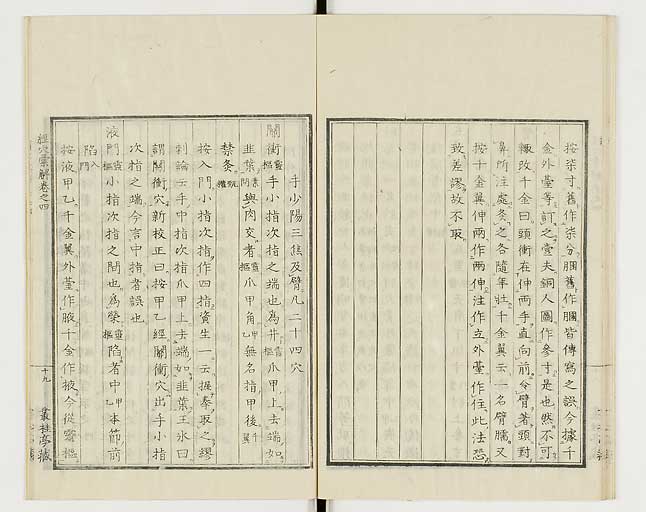 按柒寸舊作柒分胭舊作膕皆傳寫之誤今據千
金外臺等訂之壹夫銅人圖作參寸是也然不可
輙改千金曰頭衝在伸兩手直向前令臂著頭對
鼻所注處灸之各隨年壯千金翼云一名臂臑又
按千金翼伸兩作兩伸注作立外臺作住此法恐
致差謬故不取
手少陽三焦及臂凡二十四穴
關衝靈樞手小指次指之端也爲井靈樞爪甲上去端如
韭葉素問與肉交者靈樞爪甲角甲乙無名指甲後千翼
禁灸甄權
按入門小指次指作四指資生一云握拳取之繆
刺論云手中指次指爪甲上去端如韭葉王氷曰
謂關衝穴新校正曰按甲乙經關衝穴出手小指
次指之端今言中指者誤也
液門靈樞小指次指之間也爲滎靈樞陷者中甲乙本節前
陷入門
按液甲乙千金翼外臺作腋千金作掖今從靈樞
經穴彙解卷之四
十九
叢桂亭藏